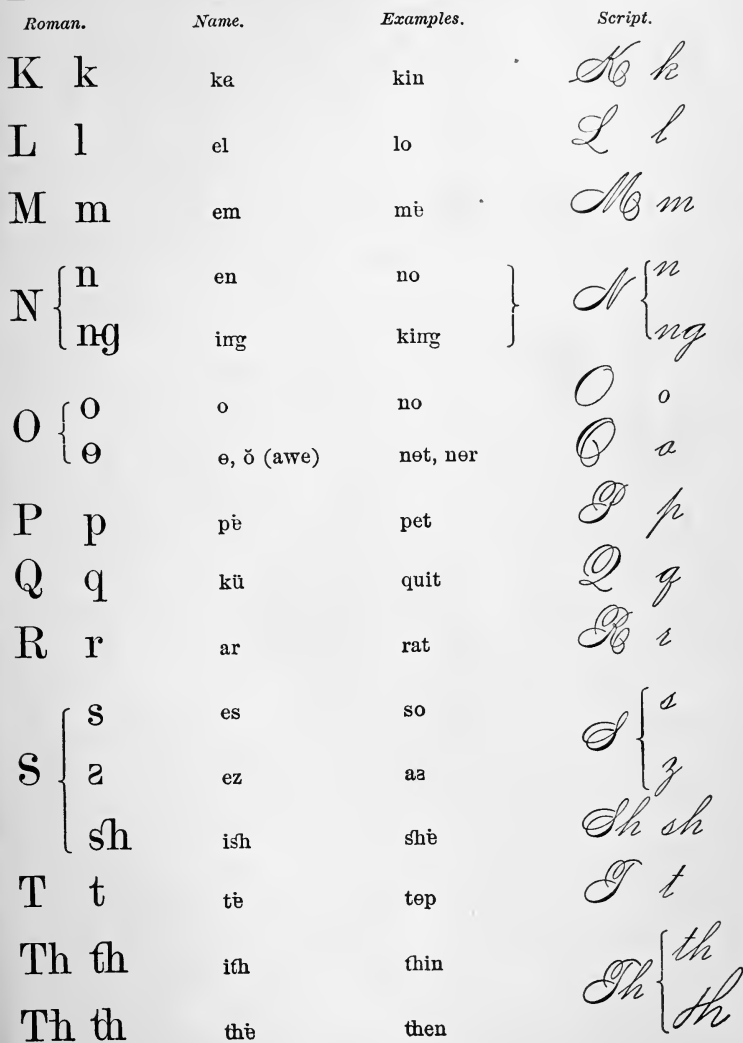 Roman. Name. Examples. Script.
K k ka kin K k
L l el lo L l
M m em mė M m
N { n en no } N { n
ng ing king ng
O { o o no O o
ɵ ɵ, ŏ (awe) nɵt, nɵr O a
P p pė pet P p
Q q kü quit Q q
R r ar rat R r
S { s es so S { s
ƨ ez aƨ z
sh ish shė Sh sh
T t tė tɵp T t
Th th ith thin Th { th
Th th thė then th